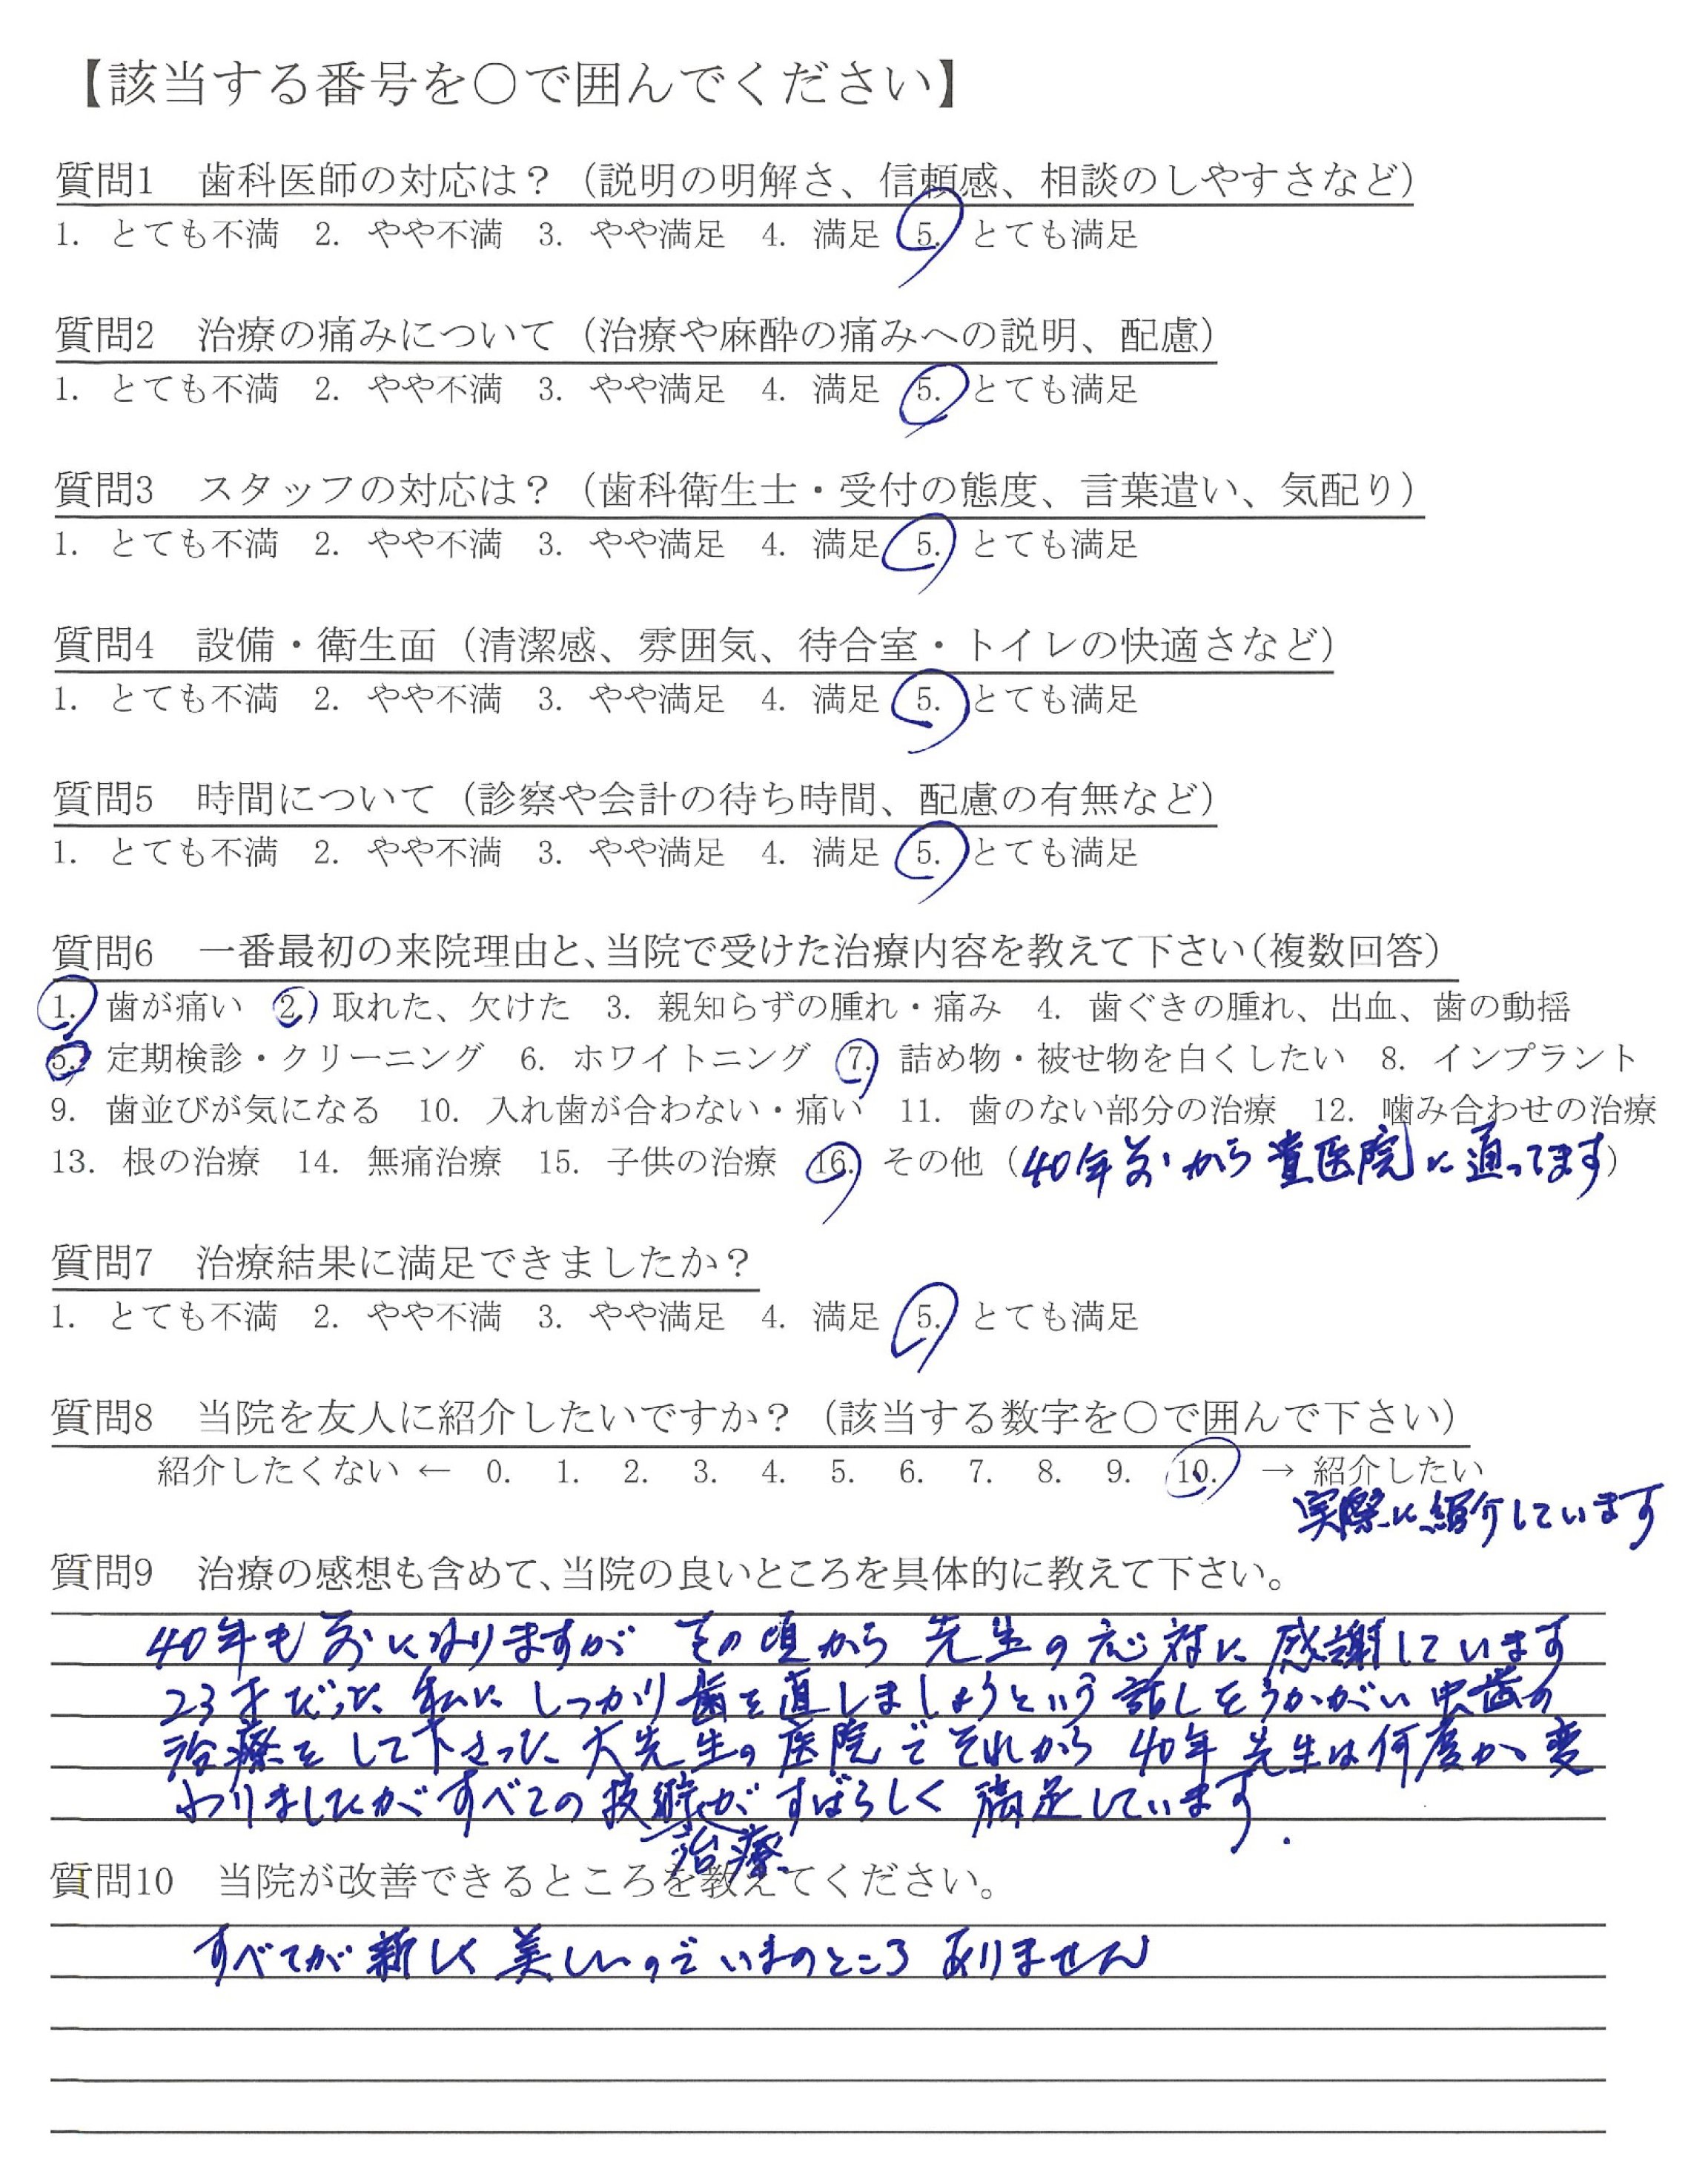 【該当する番号を○で囲んでください】
質問1　歯科医師の対応は？（説明の明解さ、信頼感、相談のしやすさなど）
1. とても不満　2. やや不満　3. やや満足　4. 満足　5. とても満足
質問2　治療の痛みについて（治療や麻酔の痛みへの説明、配慮）
1. とても不満　2. やや不満　3. やや満足　4. 満足　5. とても満足
質問3　スタッフの対応は？（歯科衛生士・受付の態度、言葉遣い、気配り）
1. とても不満　2. やや不満　3. やや満足　4. 満足　5. とても満足
質問4　設備・衛生面（清潔感、雰囲気、待合室・トイレの快適さなど）
1. とても不満　2. やや不満　3. やや満足　4. 満足　5. とても満足
質問5　時間について（診察や会計の待ち時間、配慮の有無など）
1. とても不満　2. やや不満　3. やや満足　4. 満足　5. とても満足
質問6　一番最初の来院理由と、当院で受けた治療内容を教えて下さい（複数回答）
1. 歯が痛い　2. 取れた、欠けた　3. 親知らずの腫れ・痛み　4. 歯ぐきの腫れ、出血、歯の動揺
5. 定期検診・クリーニング　6. ホワイトニング　7. 詰め物・被せ物を白くしたい　8. インプラント
9. 歯並びが気になる　10. 入れ歯が合わない・痛い　11. 歯のない部分の治療　12. 噛み合わせの治療
13. 根の治療　14. 無痛治療　15. 子供の治療　16. その他（40年前から 医院に通ってます）
質問7　治療結果に満足できましたか？
1. とても不満　2. やや不満　3. やや満足　4. 満足　5. とても満足
質問8　当院を友人に紹介したいですか？（該当する数字を○で囲んで下さい）
紹介したくない ← 0. 1. 2. 3. 4. 5. 6. 7. 8. 9. 10. → 紹介したい
実際に紹介しています
質問9　治療の感想も含めて、当院の良いところを具体的に教えて下さい。
40年も前になりますが その頃から 先生の応対に感謝しています
23才だった 私に しっかり歯を直しましょうという話しをうかがい 虫歯の
治療をして下さった 大先生の医院で それから 40年 先生は何度か変
わりましたが すべての技術が すばらしく 満足しています.
治療
質問10　当院が改善できるところを教えてください。
すべてが新しく美しいので いまのところ ありません